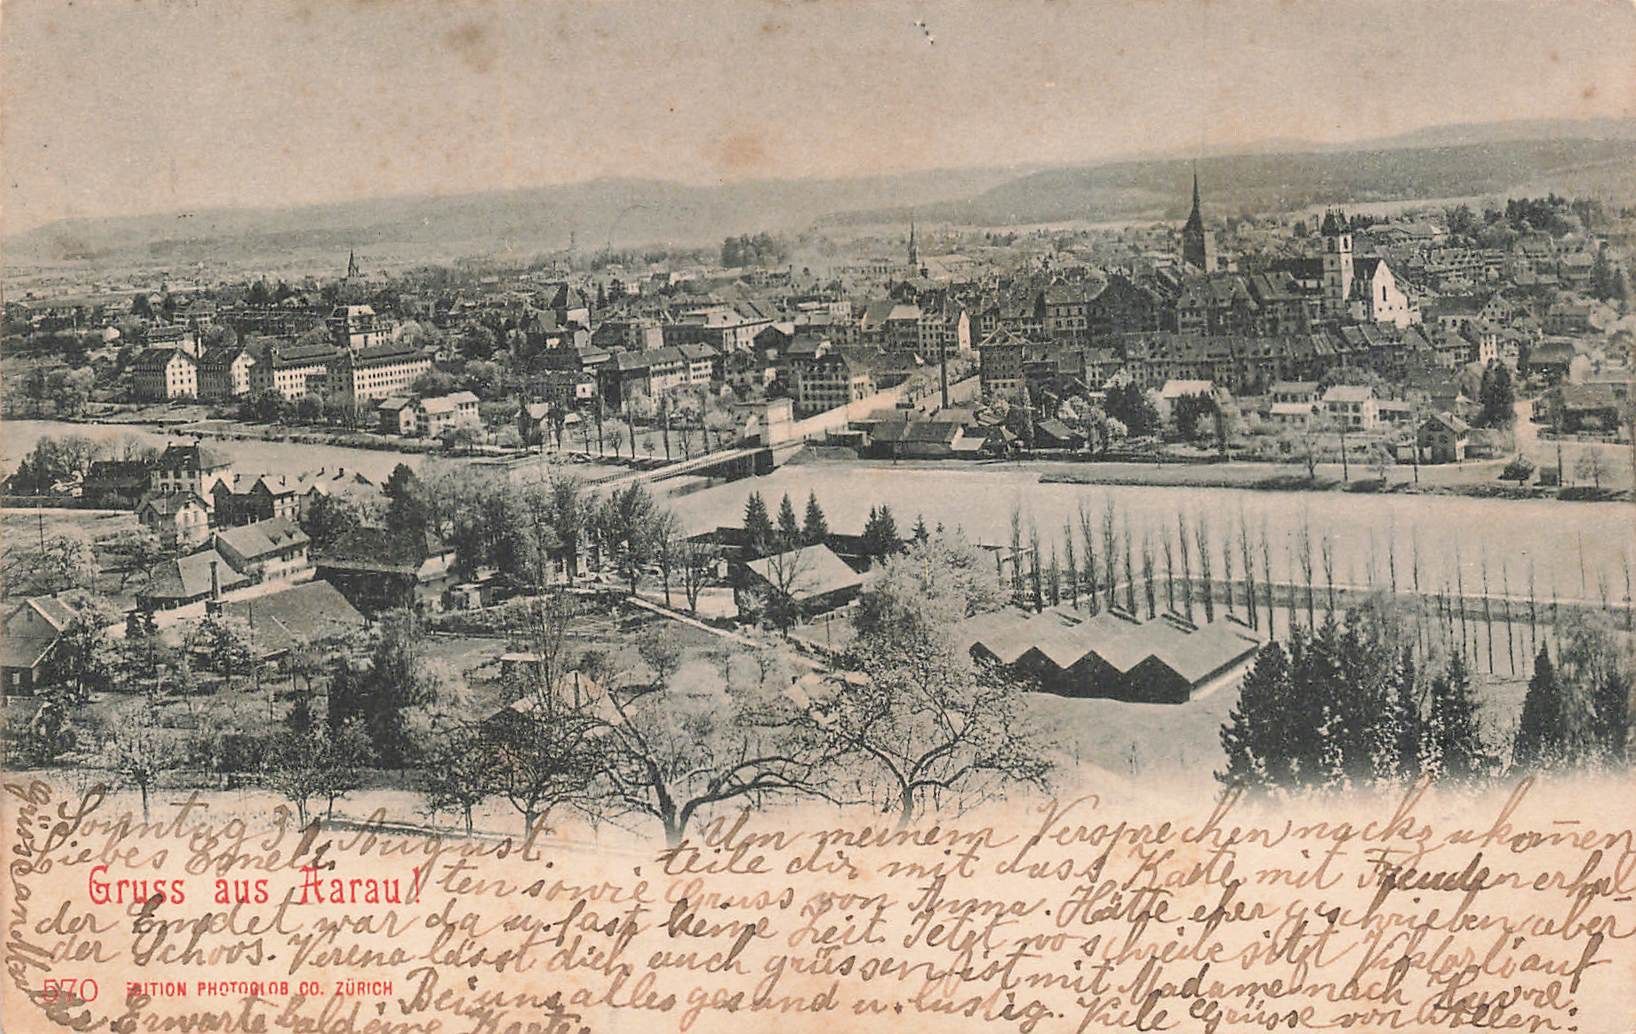 Sonntag 31 August.
Liebes Emeli,
Um meinem Versprechen nachzukom̄en
teile dir mit dass Karte mit Freuden erhal
ten sowie Gruss von Anna. Hätte eher geschrieben aber
der war da u. fast keine Zeit. Jetzt wo schreibe sitzt auf
der Schoos. Verena lässt dich auch grüssen ist mit Madame nach
Bei uns alles gesund u. lustig. Viele Grüsse von Allen.
Erwarte bald eine Karte.
Grüsse an
Gruss aus Aarau!
570 EDITION PHOTOGLOB CO. ZÜRICH